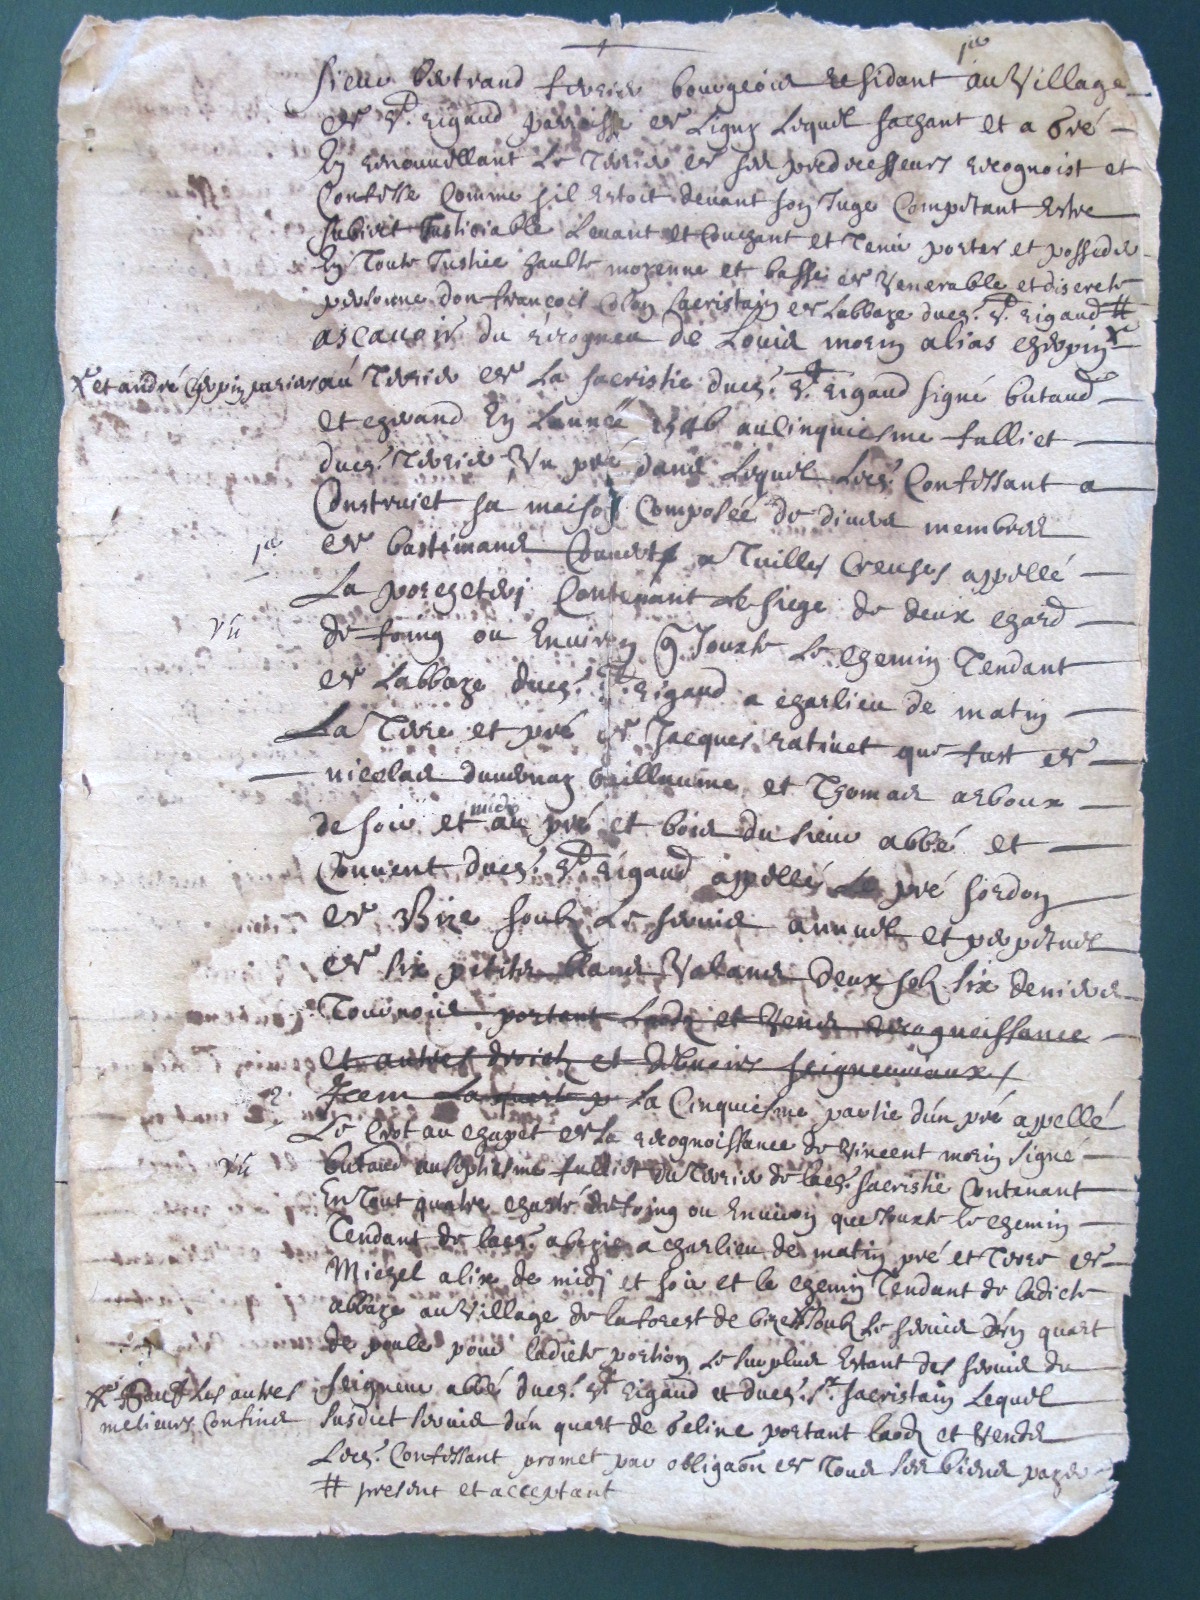 Sieur Bertrand terrier bourgeois residant au Village
de St. Rigaud parroisse de Ligny Lequel sachant et a Gré
En renouuellant Le Terrier de ses predecesseurs recognoist et
Confesse Comme sil Estoit deuant son Juge Competant Estre
subiect Justiciable Leuant et Couchant et Tenir porter et posseder
En Toute Justice haulte moyenne et basse de Venerable et discrete
personne don francois sacristain de Labbaye dud. St. Rigaud #
ascauoir du recogneu de Louis morin alias chopin X
X et andré Chopin au Terrier de La sacristie dud. St. Rigaud signé butaud
et En Lannee 1546 au Cinquiesme fulliet
dud. Terrier Vn pré dans Lequel Led. Confessant a
Construict sa maison Composée de diuers membres
1re
et bastimans Couuert a Tuilles Creuses appellé
La Contenant Le siege de deux chard
VII
de foing ou Enuiron Jouxte Le chemin Tendant
de Labbaye dud. St. Rigaud a charlieu de matin
La Terre et pré de Jacques ratinet que fust de
nicolas Guillaume et Thomas arboux
de soir et midy au pré et bois du sieur abbé et
Conuent dud. St. Rigaud appellé Le pré sordon
de Bize soubz Le seruis annuel et perpetuel
de six petitz blancs Valans deux solz six deniers
Tournois portant Laodz et Vends Recognoissance
et autres droictz et debuoirs seigneuriaux /
2.
Item La quart p La Cinquiesme partie d'un pré appellé
Le Crot au chapet de La recognoissance de Vincent morin signé
butaud au septiesme fulliet du Terrier de lad. sacristie Contenant
XII
En Tout quatre charté de foing ou Enuiron que Jouxte le chemin
Tendant de lad. abeyie a charlieu de matin pré et Terre de
Michel alix de midj et soir et le chemin Tendant de ladicte
abbaye au Village de la forest de bize X soubz Le seruis d'un quart
de poule pour ladicte portion Le surplus Estant des seruis du
X sauf Les autres
melieurs Confins
seigneur abbé dud. St. Rigaud et dud. sr. sacristain Lequel
susdict seruis d'un quart de Geline portant laodz et Vends
Led. Confessant promet par obligaōn de Tous ses biens payer
# present et acceptant